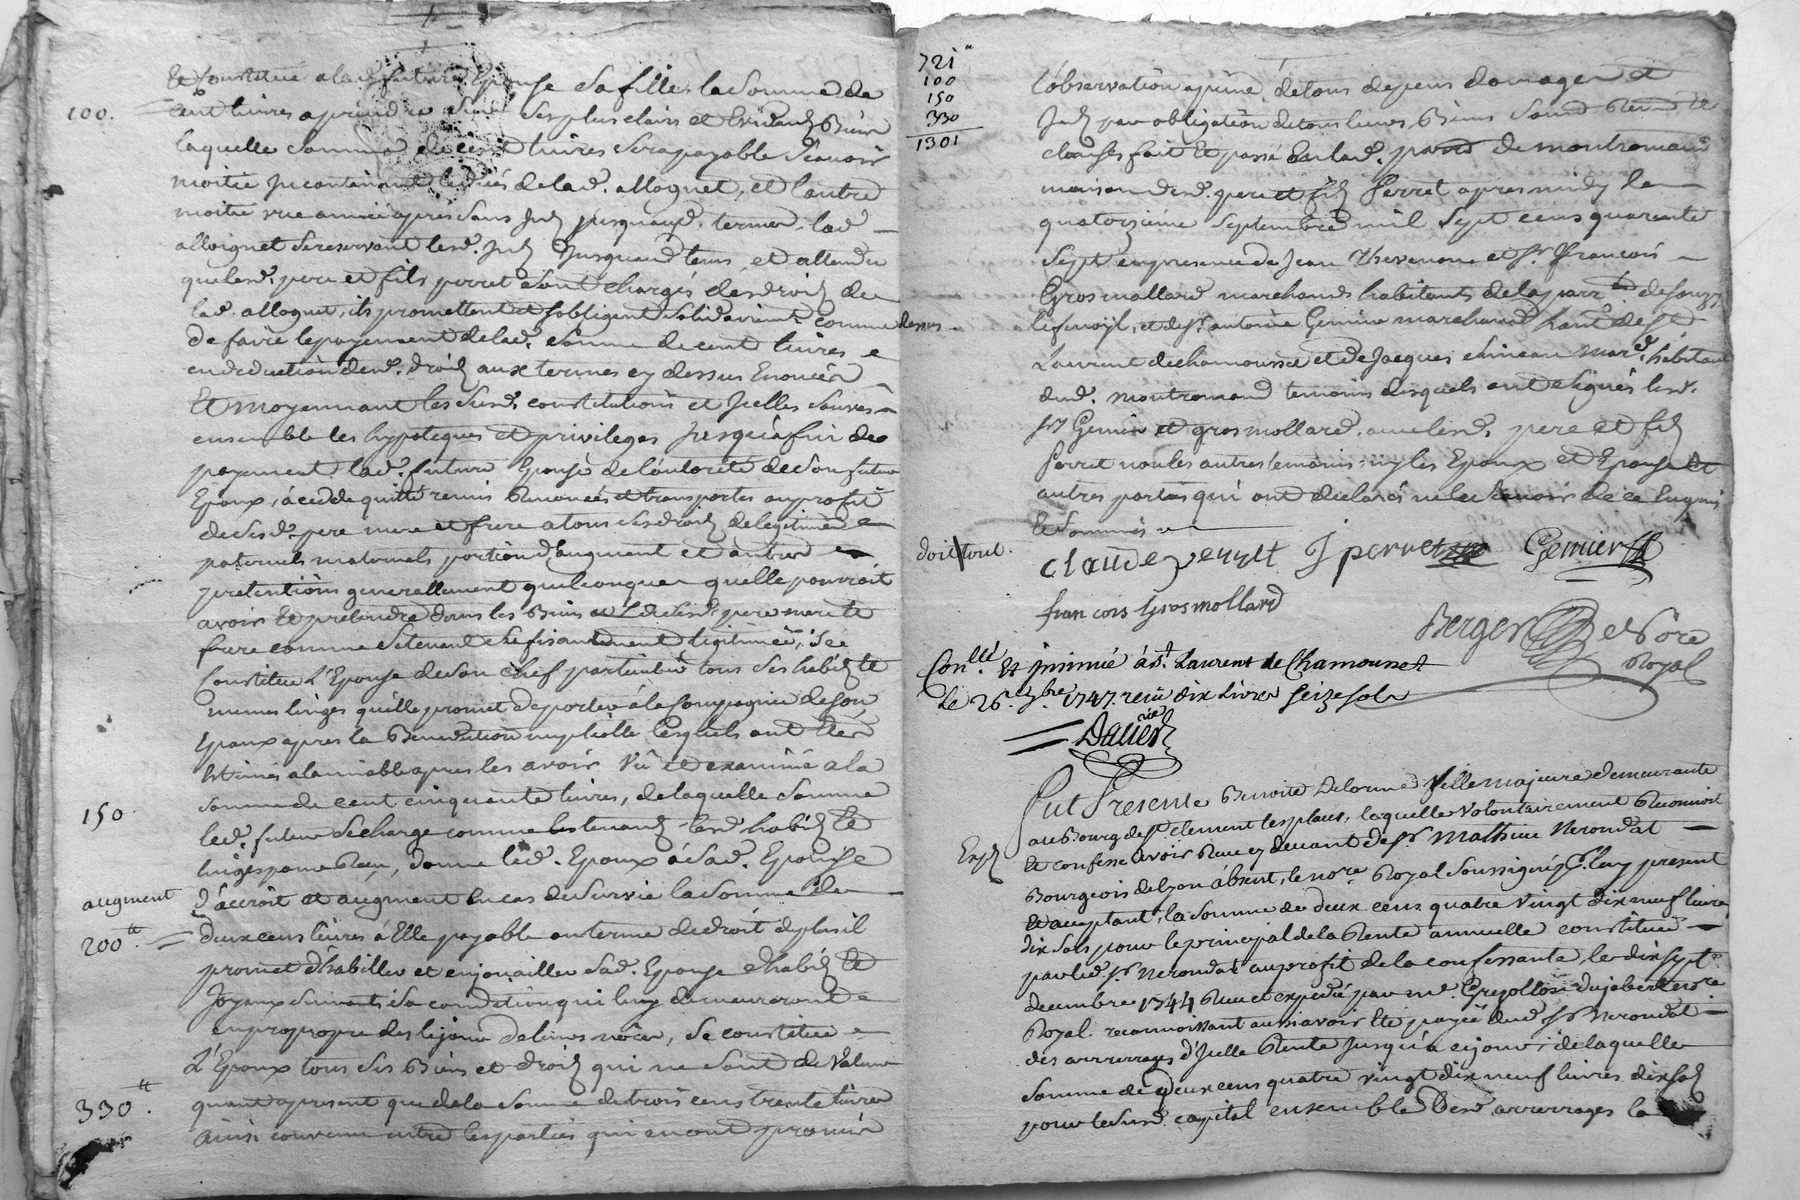 Et constitue a lad. future Epouse sa fille la somme de
100. cent livres a prendre sur ses plus clairs et liquides Biens
laquelle somme de cent livres sera payable sçavoir
moitié incontinant le décès de lad. allognet, et l'autre
moitié une année apres sans Jnts jusquaud. termes, lad
alloignet se reservant lesd. Jnts Jusquaud tems, et attendu
que lesd. pere et fils perret sont chargés desdroits de
lad. allognet, ils promettent et sobligent solidairemt. comme dessus
de faire le payement de lad. somme de cent livres
en deduction desd. droits aux termes cy dessus Enoncés
Et moyennant les susd. constitutions et Jcelles sauves
ensemble les hypoteques et privileges jusqu'a fin de
payement lad. future Epouse de l'autorité de son futur
Epoux, a cédé quitté remis Renoncé et transporté au profit
de sesd. pere mere et frere a tous ses droits de legitime
paternels maternels portion d'augment et autres
pretentions generallement quelconques quelle pourroit
avoir Et pretendre dans les Biens de sesd. pere mere et
frere comme se tenant suffisamment legitimée, Se
Constitue L'Epouse de son chef particulier tous ses habits et
menus linges qu'elle promet de porter a la compagnie de son
Epoux apres la Benediction nuptialle lesquels ont Etés
Estimés a lamiable apres les avoir Vû et examiné a la
150. somme de cent cinquante livres, de laquelle somme
led. futur se charge comme les tenants lesd. habits Et
linges pour Reçu, donne led. Epoux a sad. Epouse
augment d'accroit et augment En cas de survie la somme de
200tt. deux cens livres a Elle payable au terme de droit de plus il
promet d'habiller et enjouailler sad. Epouse d'habits Et
Joyaux suivant sa condition qui luy demeureront
en propre des le jour de leurs noces, Se constitue
L'Epoux tous ses Biens et droits qui ne sont de Valeur
330tt. quant a present que de la somme de trois cens trente livres
ainsi convenu entre les parties qui en ont promis
721tt
100
150
330
1301
l'observation a peine de tous depens domages et
Jnts par obligation de tous leurs Biens soumd Renond et
clauses fait Et passé aud. de montromand
maison desd. pere et fils Perret apres midy le
quatorzieme Septembre mil sept cens quarante
sept en presence de Jean Thevenon et sr. François
Grosmollard marchands habitants de la parrsse. de Souzy
et de sr. antoine Gemier marchand hant. de St
Laurent de chamousset et de Jacques chineau Mard. habitant
dud. montromand temoins desquels ont signés lesd.
srs Gemier et gros mollard, avec lesd. pere et fils
Perret non les autres temoins, ny les Epoux et Epouse et
autres parties qui ont declaré ne le sçavoir de ce Enquis
Et sommés
doit tout.
claude J perret Gemier
francois Grosmollard
Berger Nore
Royal
Conlle. Et jnsinué a St. Laurent de Chamousset
Le 26e. 7bre 1747. reçu dix Livres seize sols
Fut Presente Benoite Delorme fille majeure demeurante
au Bourg de St clement les places, laquelle Volontairement Reconnoit
Expe Et confesse avoir Reçu cy devant de sr. Mathieu Nerondat
Bourgeois de Lyon absent, le nore. Royal soussigné pr. luy present
Et acceptant, la somme de deux cens quatre vingt dix neuf livres
dix sols pour le principal de la Rente annuelle constituée
par led. sr. Nerondat au profit de la confessante, le dix sept
decembre 1744 Reçu et expedié par me. Greyollon dujobert nore
Royal. reconnoissant aussi avoir Eté payée dud. sr. Nerondat
des arrerages d'Jcelle Rente Jusqu'a ce jour; de laquelle
somme de deux cens quatre vingt dix neuf livres dix sols
pour le susd. capital ensemble desd. arrerages la